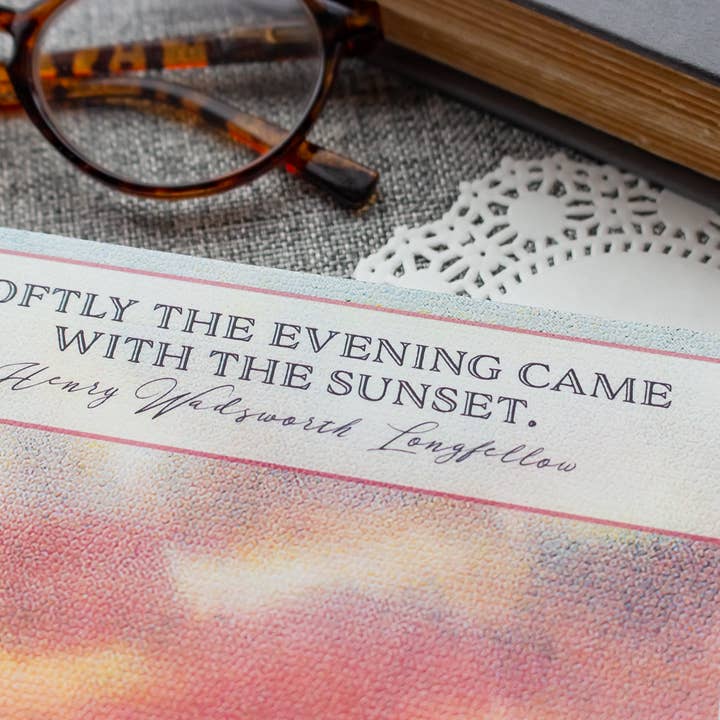 OFTLY THE EVENING CAME
WITH THE SUNSET.
Henry Wadsworth Longfellow